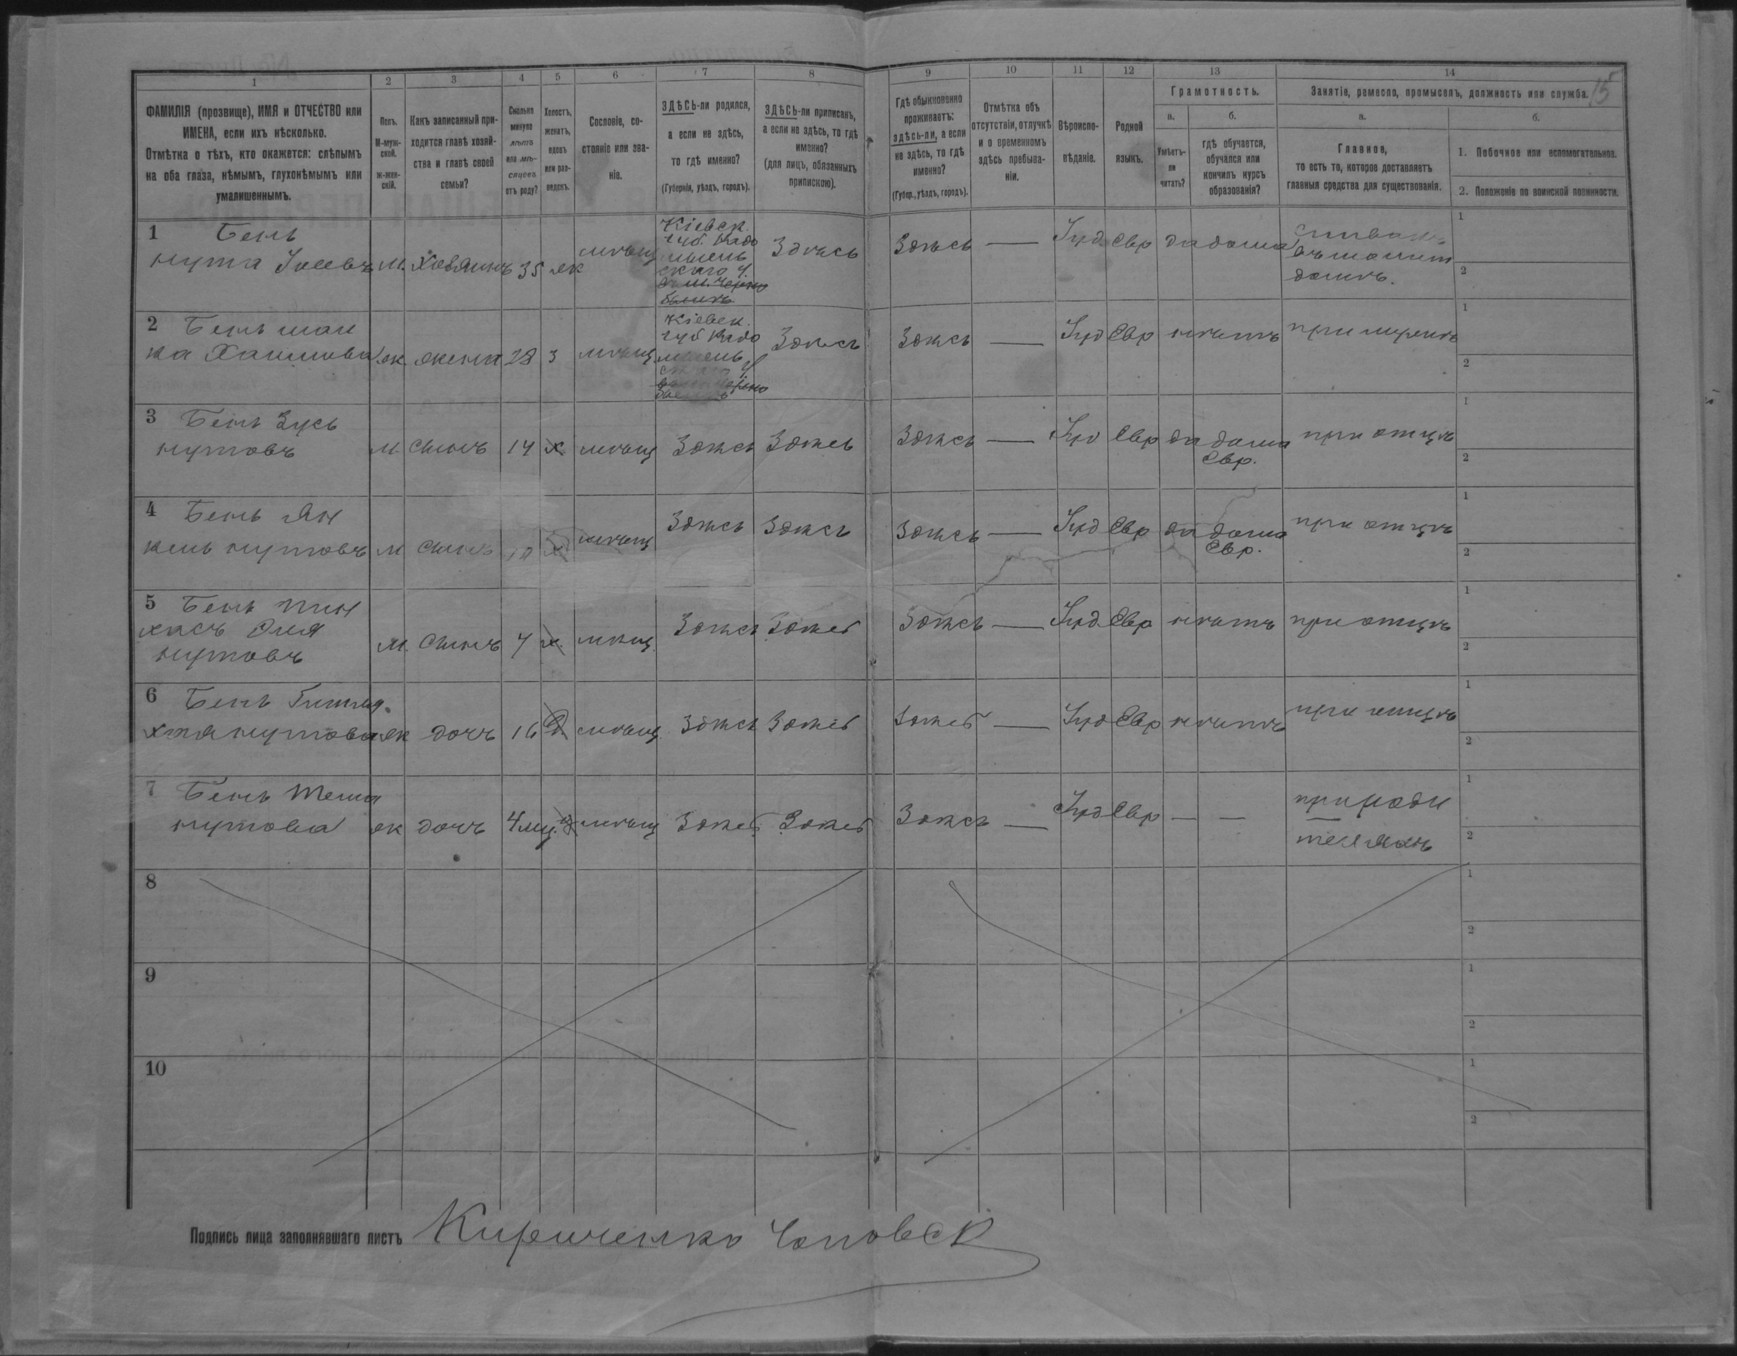 15
1 2 3 4 5 6 7 8 9 10 11 12 13 14
ФАМИЛІЯ (прозвище), ИМЯ и ОТЧЕСТВО или
ИМЕНА, если ихъ нѣсколько.
Отмѣтка о тѣхъ, кто окажется: слѣпымъ
на оба глаза, нѣмымъ, глухонѣмымъ или
умалишеннымъ.
Полъ.
М-муж-
ской.
ж-жен-
скій.
Какъ записанный при-
ходится главѣ хозяй-
ства и главѣ своей
семьи?
Сколько
минуло
лѣтъ
или мѣ-
сяцевъ
отъ роду?
Холостъ,
женатъ,
вдовъ
или раз-
веденъ.
Сословіе, со-
стояніе или зва-
ніе.
ЗДѢСЬ-ли родился,
а если не здѣсь,
то гдѣ именно?
(Губернія, уѣздъ, городъ).
ЗДѢСЬ-ли приписанъ,
а если не здѣсь, то гдѣ
именно?
(для лицъ, обязанныхъ
припискою).
Гдѣ обыкновенно
проживаетъ:
здѣсь-ли, а если
не здѣсь, то гдѣ
именно?
(Губер., уѣздъ, городъ).
Отмѣтка объ
отсутствіи, отлучкѣ
и о временномъ
здѣсь пребыва-
ніи.
Вѣроиспо-
вѣданіе.
Родной
языкъ.
Грамотность.
а.
Умѣетъ-
ли
читать?
б.
гдѣ обучается,
обучался или
кончилъ курсъ
образованія?
Занятіе, ремесло, промыселъ, должность или служба.
а.
Главное,
то есть то, которое доставляетъ
главныя средства для существованія.
б.
1. Побочное или вспомогательное.
2. Положеніе по воинской повинности.
1 Бень
нута М. Хозяинъ 35 ж мѣщ Здѣсь Здѣсь — Іуд Евр да дома
Кіевск.
губ. Радо
мысль
скаго у.
2 Бень
Хаимова ж жена 28 з мѣщ Здѣсь Здѣсь — Іуд Евр нѣтъ при мужѣ
Кіевск.
губ Радо
мысль
3 Бень Зусь
нутовъ М сынъ 14 х мѣщ Здѣсь Здѣсь Здѣсь — Іуд Евр да дома
Евр. при отцѣ
4 Бень Ян
кель нутовъ М сынъ 10 х мѣщ Здѣсь Здѣсь Здѣсь — Іуд Евр да дома
Евр. при отцѣ
5 Бень Пин
хасъ
нутовъ М. сынъ 7 х мѣщ Здѣсь Здѣсь Здѣсь — Іуд Евр нѣтъ при отцѣ
6 Бень
нутова ж дочь 16 мѣщ Здѣсь Здѣсь Здѣсь — Іуд Евр нѣтъ при отцѣ
7 Бень
нутова ж дочь 4 мѣщ Здѣсь Здѣсь Здѣсь — Іуд Евр — — при роди
теляхъ
8
9
10
Подпись лица заполнявшаго листъ